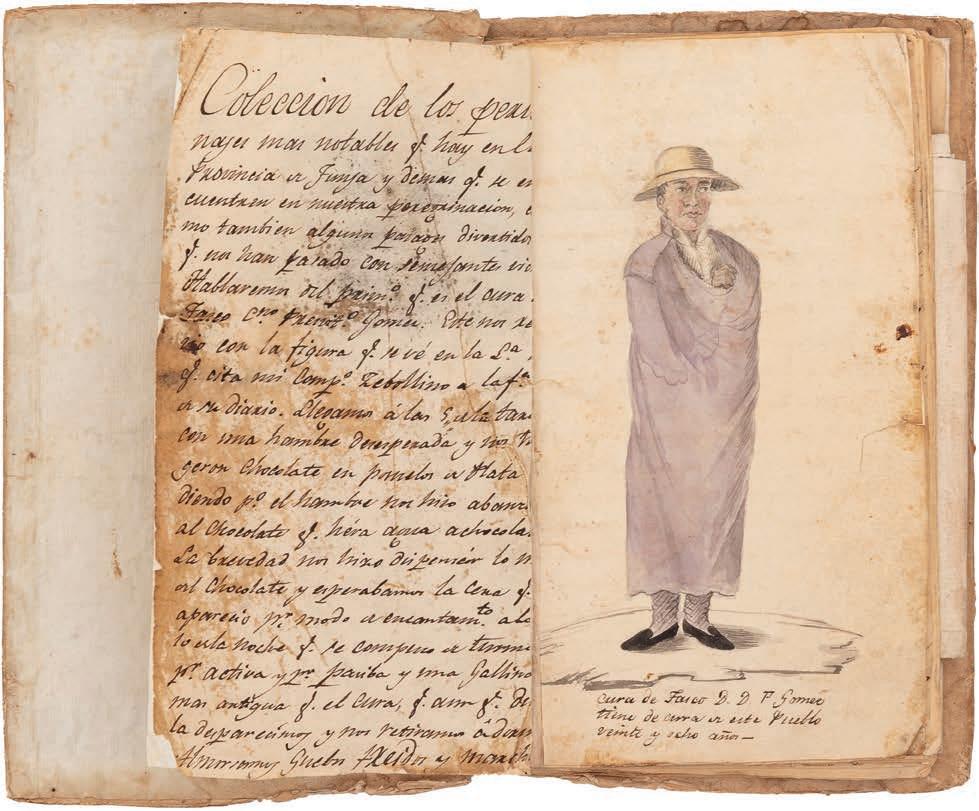 Coleccion de los pers
najes mas notables q.e hay en l
Provincia de Tunja y demas q.e se en
cuentren en nuestra peregrinacion, c
mo tambien algunos pasages divertido
q.e nos han pasado con semejantes
Hablaremos del prim.o q.e es el cura
Tasco Presvit.o Gomez. Este nos re
vio con la figura q.e se vé en la L.a
q.e cita mi Comp.o Rebollino a la f.a
de su diario. Llegamos á las 5 de la tar
con una hambre desesperada y nos
geron Chocolate en posuelos de Plata
diendo p.o el hambre nos hizo abanz
al Chocolate q.e héra agua achocola
La brevedad nos hizo dispensár lo m
del Chocolate y esperabamos la Cena q.e
aparecio p.r modo de encantam.to a la
de la noche q.e se compuso de
p.r activa y p.r pasiba y una Gallina
mas antigua q.e el Cura, q.e aun q.e
la desparecimos y nos retiramos á dorm
Almorsamos Guebos Fritos y march
cura de Tasco D. D P. Gomez
tiene de cura de este Pueblo
veinte y ocho años—